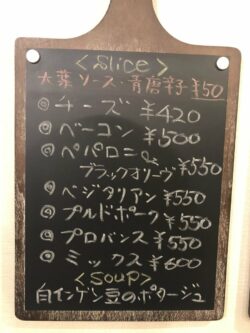 <Slice>
大葉ソース・青唐辛子 ¥50
◎ チーズ ¥420
◎ ベーコン ¥500
◎ ペパロニ&
ブラックオリーヴ ¥550
◎ ベジタリアン ¥550
◎ プルドポーク ¥550
◎ プロバンス ¥550
◎ ミックス ¥600
<Soup>
白インゲン豆のポタージュ